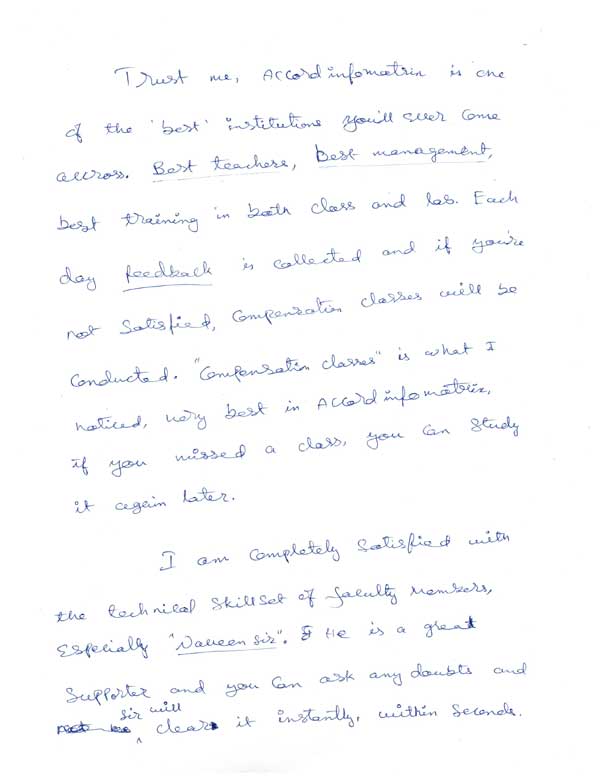 Trust me, Accord infomatrix is one
of the 'best' institutions you'll ever come
accross. Best teachers, Best management,
best training in both class and lab. Each
day feedback is collected and if you're
not satisfied, compensation classes will be
conducted. "Compensation classes" is what I
noticed, very best in Accord infomatrix,
if you missed a class, you can study
it again later.
I am completely satisfied with
the technical skillset of faculty members,
Especially "Naveen sir". He is a great
supporter and you can ask any doubts and
sir will
clear it instantly, within seconds.